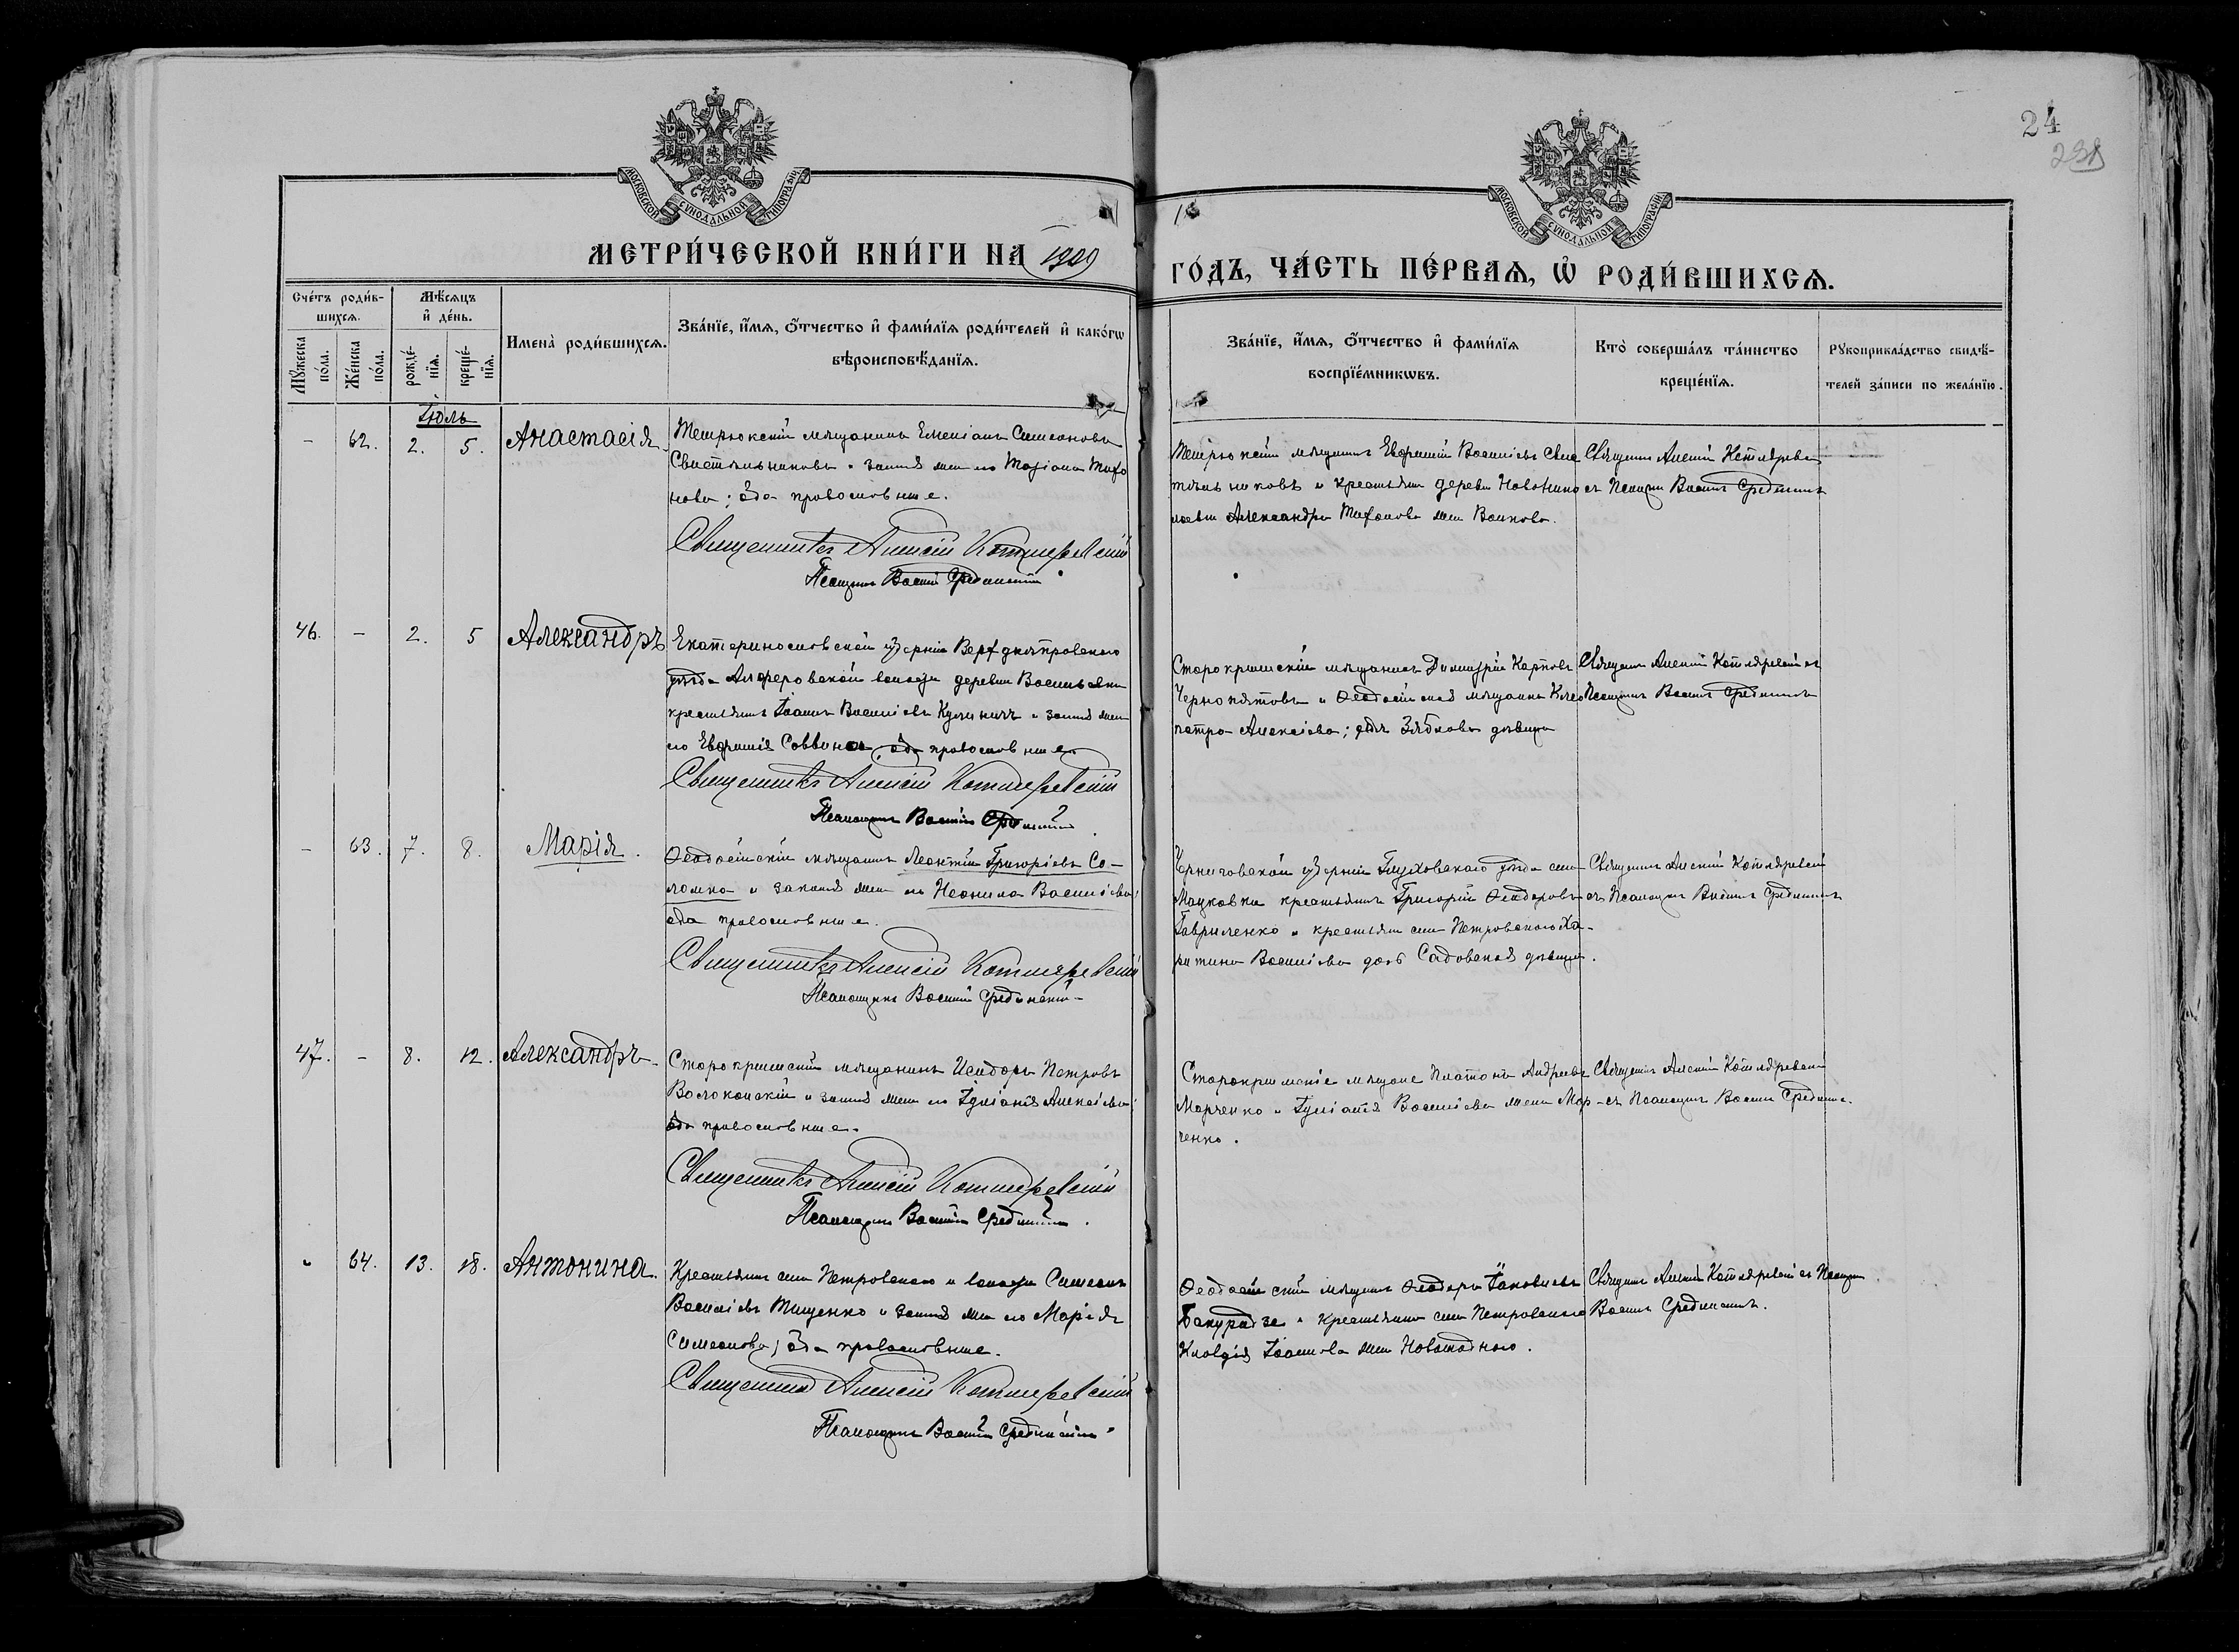 24
238
МОСКОВСКОЙ СѴНОДАЛЬНОЙ ТИПОГРАФІИ
МОСКОВСКОЙ СѴНОДАЛЬНОЙ ТИПОГРАФІИ
МЕТРИ́ЧЕСКОЙ КНИ́ГИ НА 1909
ГО́ДЪ, ЧА́СТЬ ПЕ́РВАѦ, Ѿ РОДИ́ВШИХСѦ.
Сче́тъ роди́в-
шихсѧ.
Мѣ́сѧцъ
и҆ де́нь.
Мꙋ́жеска по́ла.
Же́нска по́ла.
рожде́нїѧ.
креще́нїѧ.
Имена̀ роди́вшихсѧ.
Зва́нїе, и҆́мѧ, ѻ҆́тчество и҆ фами́лїѧ роди́телей и҆ како́гѡ
вѣроисповѣ́данїѧ.
Зва́нїе, и҆́мѧ, ѻ҆́тчество и҆ фами́лїѧ
воспрїе́мникѡвъ.
Кто̀ соверша́лъ та́инство
креще́нїѧ.
Рꙋкоприкла́дство свидѣ́-
телей за́писи по жела́нїю.
Іюль
- 62. 2. 5. Анастасія.
Темрюкскій мѣщанинъ Емеліанъ Симеоновъ
Свѣтильниковъ и законная жена его Татіана Тихо
нова; оба православные.
Священникъ Алексій Котляревскій
Псаломщикъ Василій Срединскій
Темрюкскій мѣщанинъ Евфимій Васильевъ Свѣ
тильниковъ и крестьянка деревни Новонико
лаевки Александра Тихонова жена Волкова.
Священникъ Алексій Котляревскій
съ Псаломщ. Василіемъ Срединскимъ
46. - 2. 5 Александръ
Екатеринославской губерніи Верхднѣпровскаго
уѣзда Алферовской волости деревни Васильевки
крестьянинъ Іоаннъ Васильевъ Кулиничъ и законная жена
его Евфимія Саввина, оба православные.
Священникъ Алексій Котляревскій
Псаломщикъ Василій Срединскій
Старокрымскій мѣщанинъ Димитрій Карповъ
Чернопятовъ и Ѳеодосійская мѣщанка Клео
патра Алексіева; дочь Зябловъ дѣвица
Священникъ Алексій Котляревскій съ
Псаломщ. Василіемъ Срединскимъ
- 63. 7. 8. Марія.
Ѳеодосійскій мѣщанинъ Леонтій Григорьевъ Со-
ломко и законная жена его Неонила Васильева;
оба православные.
Священникъ Алексій Котляревскій
Псаломщикъ Василій Срединскій
Черниговской губерніи Глуховскаго уѣзда села
Мацковки крестьянинъ Григорій Ѳеодоровъ
Гавриленко и крестьянка села Петровскаго Ха-
ритина Васильева дочь Садовская дѣвица.
Священникъ Алексій Котляревскій
съ Псаломщ. Василіемъ Срединскимъ
47. - 8. 12. Александръ
Старокрымскій мѣщанинъ Исидоръ Петровъ
Волоконскій и законная жена его Іуліанія Алексіева;
оба православные.
Священникъ Алексій Котляревскій
Псаломщикъ Василій Срединскій.
Старокрымскіе мѣщане Платонъ Андреевъ
Марченко и Іуліанія Васильева жена Мар-
ченко.
Священникъ Алексій Котляревскій
съ Псаломщ. Василіемъ Срединск.
- 64. 13. 18. Антонина.
Крестьянинъ села Петровскаго и волости Симеонъ
Васильевъ Тищенко и законная жена его Марія
Симеонова; оба православные.
Священникъ Алексій Котляревскій
Псаломщикъ Василій Срединскій
Ѳеодосійскій мѣщанинъ Ѳеодоръ Іаковлевъ
Бакурадзе и крестьянка села Петровскаго
Клавдія Іоаннова жена
Священникъ Алексій Котляревскій съ Псаломщ.
Василіемъ Срединскимъ.